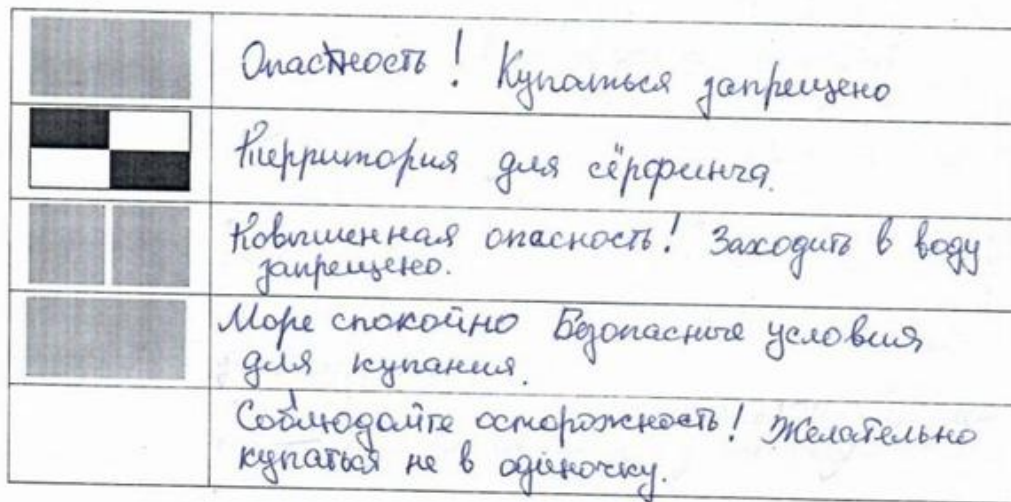 Опастность! Купаться запрещено
Территория для сёрфинга.
Повышенная опасность! Заходить в воду
запрещено.
Море спокойно Безопасные условия
для купания.
Соблюдайте осторожность! Желательно
купаться не в одиночку.